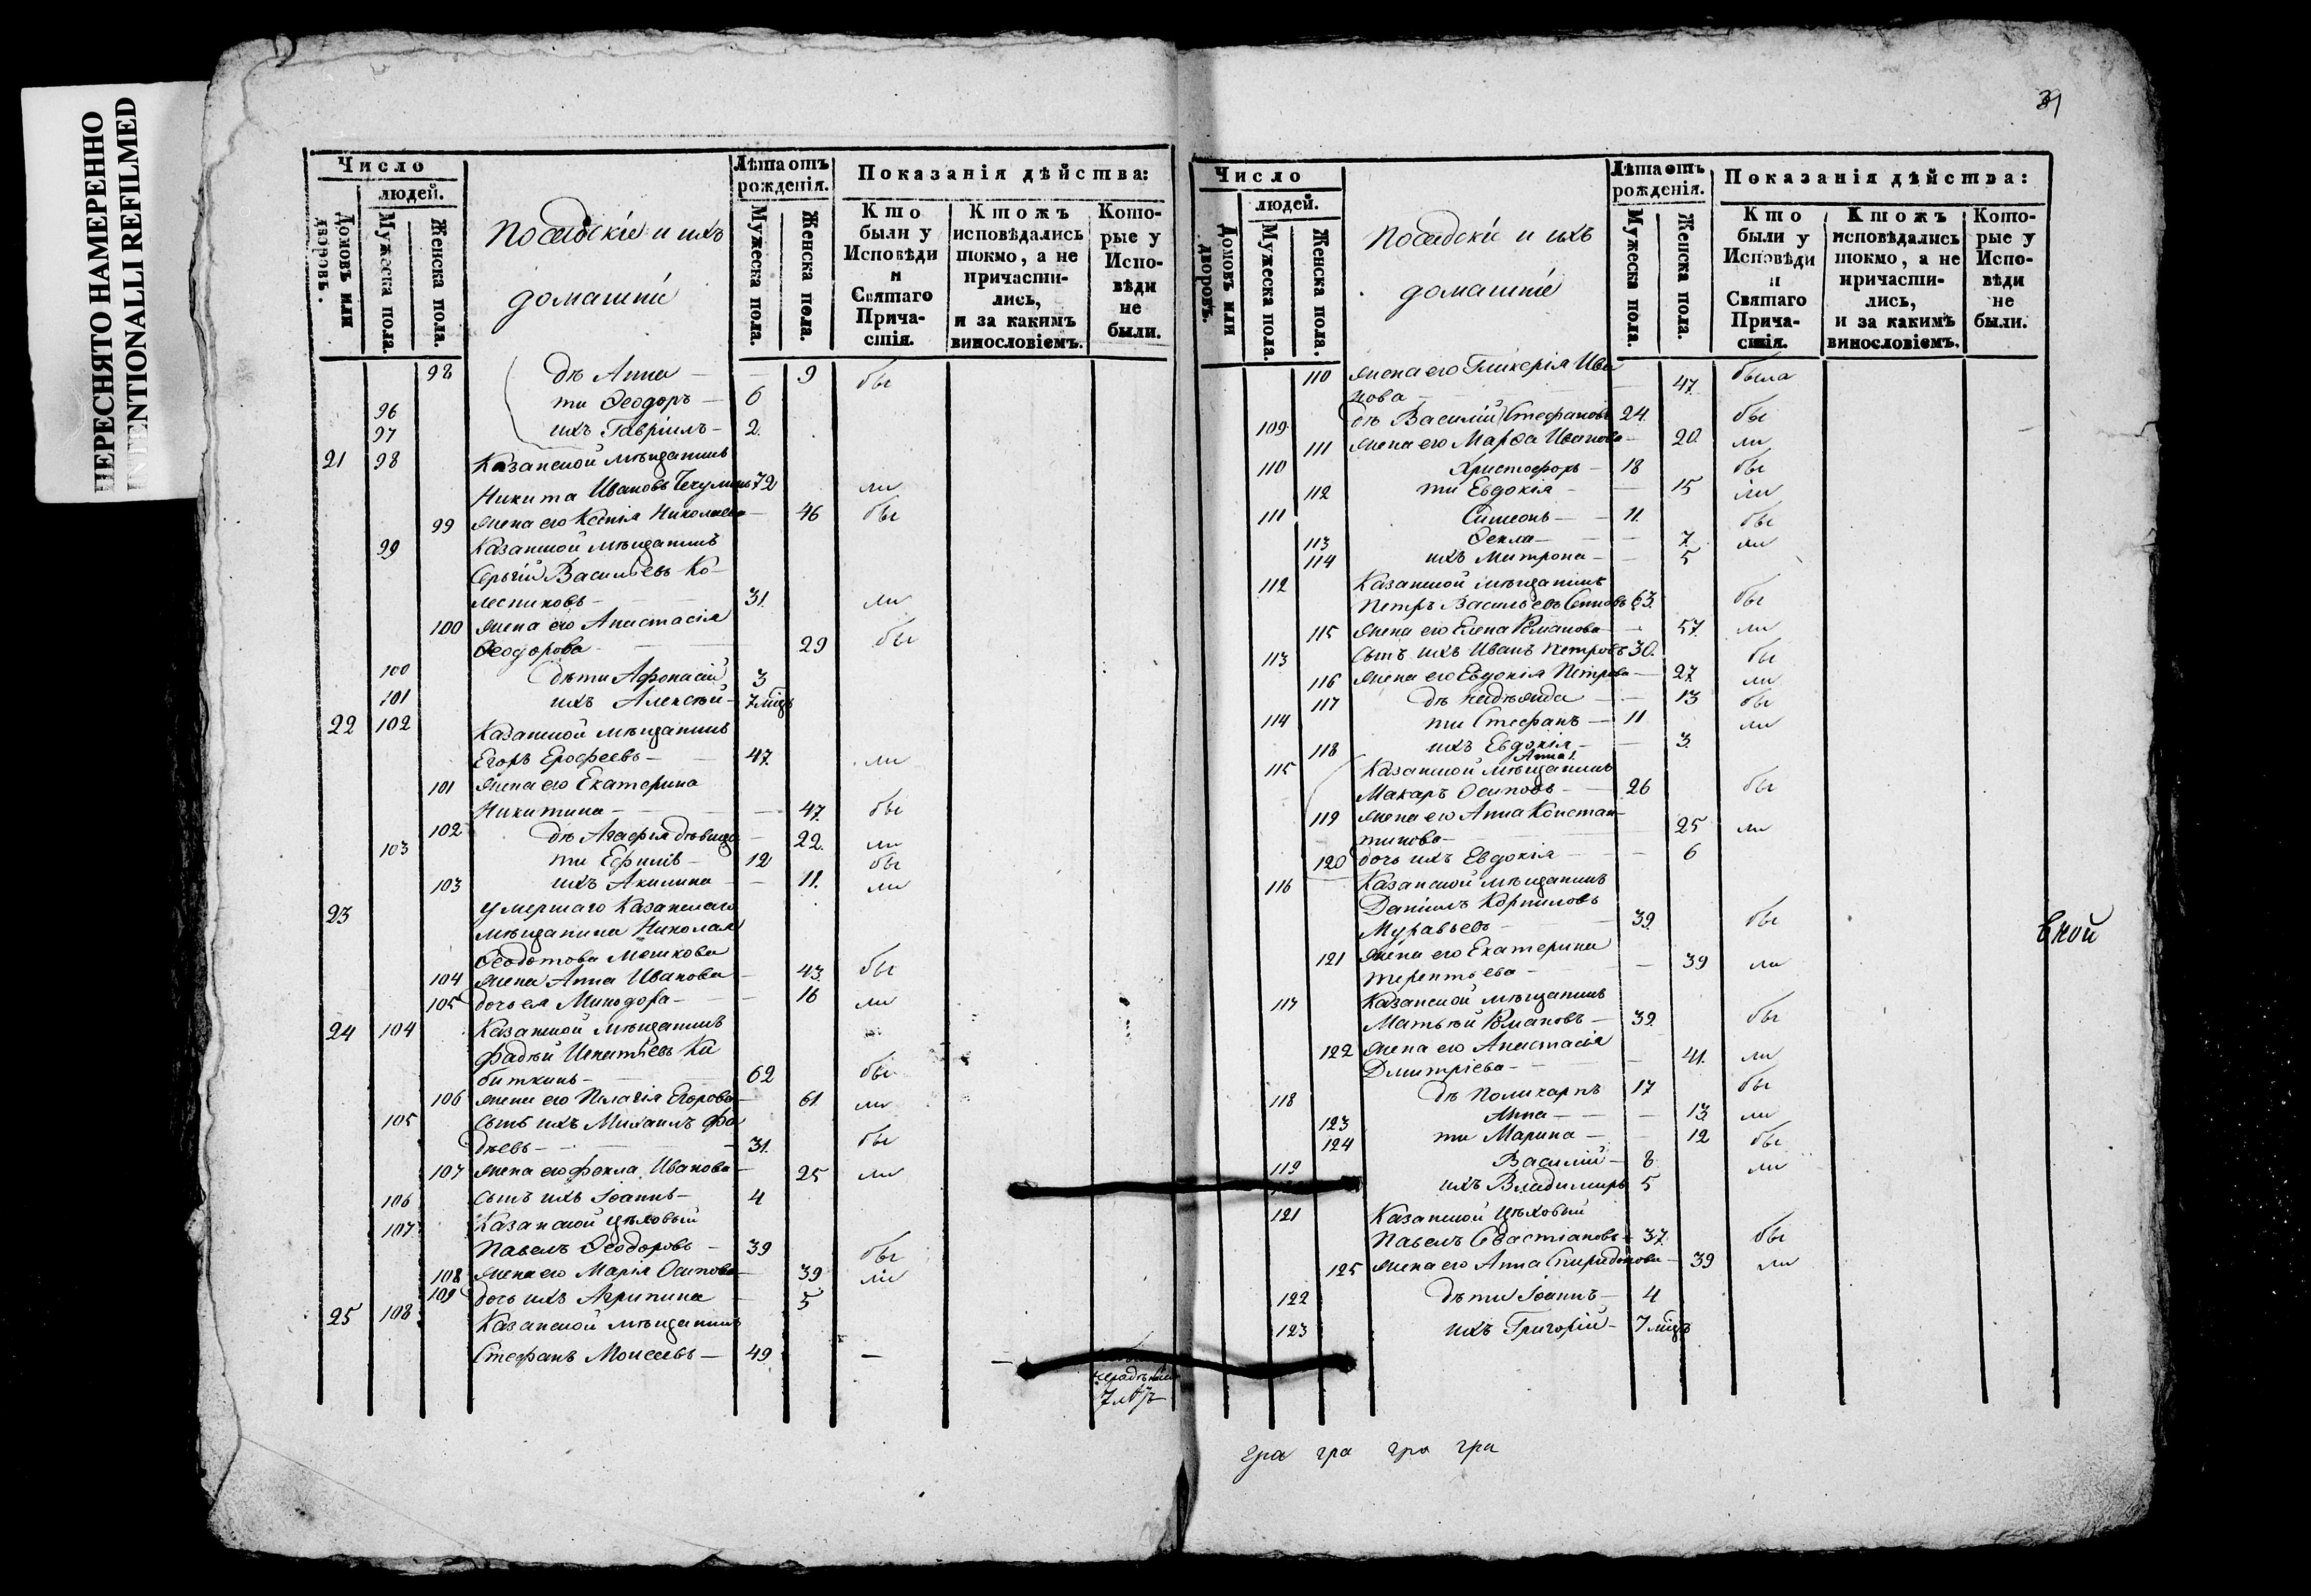 ПЕРЕСНЯТО НАМЕРЕННО
INTENTIONALLI REFILMED
Число
людей.
Домовъ или дворовъ.
Мужеска пола.
Женска пола.
Посадскіе и ихъ
домашніе
Лѣта отъ рожденія.
Мужеска пола.
Женска пола.
Показанія дѣйства:
Кто были у Исповѣди и Святаго Причастія.
Ктожъ исповѣдались токмо, а не причастились, и за какимъ винословіемъ.
Которые у Исповѣди не были.
98 дѣ Анна — 9 бы
96 ти Ѳеодоръ — 6
97 ихъ Гавріилъ — 2
21 98 Казанской мѣщанинъ
Никита Ивановъ 72 ли
99 жена его Ксенія Николаева — 46 бы
99 Казанской мѣщанинъ
Сергій Васильевъ Ко-
лесниковъ — 31 ли
100 жена его Анастасія
Ѳеодорова — 29 бы
100 дѣти Афонасій 3
101 ихъ Алексѣй — 7 мѣцъ
22 102 Казанской мѣщанинъ
Егоръ Ерофеевъ — 47 ли
101 жена его Екатерина
Никитина — 47 бы
102 дѣ Агафія дѣвица — 22 ли
103 ти Ефимъ — 12 бы
103 ихъ Акилина — 11 ли
23 умершаго Казанскаго
мѣщанина Николая
Ѳеодотова Мешкова
104 жена Анна Иванова — 43 бы
105 дочь ея Минодора — 16 ли
24 104 Казанской мѣщанинъ
Фадѣй Игнатьевъ Ки
биткинъ — 62 бы
106 жена его Пелагія Егорова — 61 ли
105 сынъ ихъ Михаилъ Фа
дѣевъ — 31 бы
107 жена его Фекла Иванова — 25 ли
106 сынъ ихъ Іоаннъ — 4
107 Казанской цѣховый
Павелъ Ѳеодоровъ — 39 бы
108 жена его Марія Осипова — 39 ли
109 дочь ихъ Агрипина — 5
25 108 Казанской мѣщанинъ
Стефанъ Моисеевъ — 49 —
39
Число
людей.
Домовъ или дворовъ.
Мужеска пола.
Женска пола.
Посадскіе и ихъ
домашніе
Лѣта отъ рожденія.
Мужеска пола.
Женска пола.
Показанія дѣйства:
Кто были у Исповѣди и Святаго Причастія.
Ктожъ исповѣдались токмо, а не причастились, и за какимъ винословіемъ.
Которые у Исповѣди не были.
110 жена его Гликерія Ива
нова — 47 была
109 дѣ Василій Стефановъ 24 бы
111 жена его Марѳа Иванова — 20 ли
110 Христофоръ — 18 бы
112 ти Евдокія — 15 ли
111 Симеонъ — 11 бы
113 Ѳекла — 7 ли
114 ихъ Матрона — 5
112 Казанской мѣщанинъ
Петръ Васильевъ 63 бы
115 жена его Елена Романова — 57 ли
113 Сынъ ихъ Иванъ Петровъ 30 бы
116 жена его Евдокія Петрова — 27 ли
117 дѣ Надежда — 13 бы
114 ти Стефанъ — 11 ли
118 ихъ Евдокія — 3
Анна 1.
115 Казанской мѣщанинъ
Макаръ Осиповъ — 26 бы
119 жена его Анна Констан-
тинова — 25 ли
120 дочь ихъ Евдокія — 6
116 Казанской мѣщанинъ
Даніилъ Корниловъ
Муравьевъ — 39 бы
121 жена его Екатерина
Терентьева — 39 ли
117 Казанской мѣщанинъ
Матвѣй Романовъ — 39 бы
122 жена его Анастасія
Дмитріева — 41 ли
118 дѣ Поликарпъ 17 бы
123 Анна — 13 ли
124 ти Марина — 12 бы
119 Василій — 8 ли
ихъ Владимиръ 5
121 Казанской цѣховый
Павелъ Севастіановъ — 37 бы
125 жена его Анна Спиридонова — 39 ли
122 дѣти Іоаннъ — 4
123 ихъ Григорій — 7 мѣцъ
гра гра гра гра